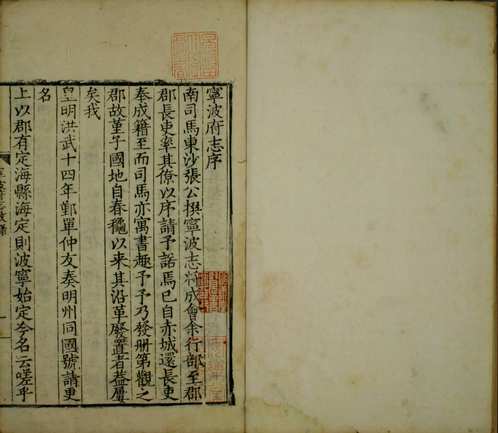 寧波府志序
南司馬東沙張公撰寧波志將成會余行部至郡
郡長吏率其僚以序請予諾焉已自赤城還長吏
奉成籍至而司馬亦寓書趣予予乃發冊第觀之
郡故堇子國地自春穐以来其沿革廢置者益屢
矣我
皇明洪武十四年鄞單仲友奏明州同國號請更
名
上以郡有定海縣海定則波寧始定今名云嗟乎